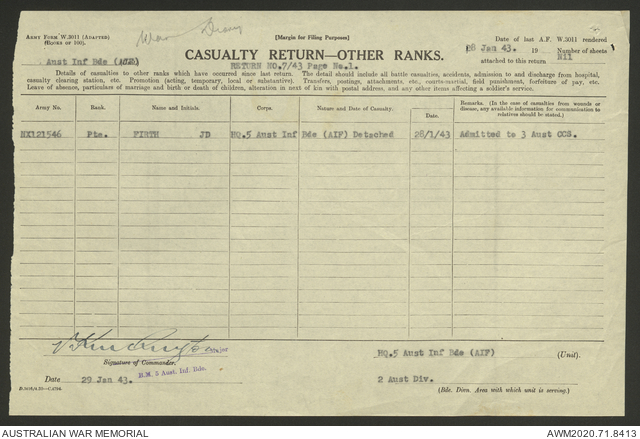 Army Form W.3011 (Adapted)
(Blocks of 100).
War Diary
[Margin for Filing Purposes]
Date of last A.F. W.3011 rendered
28 Jan 43. 19
Number of sheets
attached to this return Nil
CASUALTY RETURN—OTHER RANKS.
Aust Inf Bde (AIF)
RETURN NO.7/43 Page No.1.
Details of casualties to other ranks which have occurred since last return. The detail should include all battle casualties, accidents, admission to and discharge from hospital,
casualty clearing station, etc. Promotion (acting, temporary, local or substantive). Transfers, postings, attachments, etc., courts-martial, field punishment, forfeiture of pay, etc.
Leave of absence, particulars of marriage and birth or death of children, alteration in next of kin with postal address, and any other items affecting a soldier's service.
Army No. Rank. Name and Initials. Corps. Nature and Date of Casualty. Date. Remarks. (In the case of casualties from wounds or
disease, any available information for communication to
relatives should be stated.)
NX121546 Pte. FIRTH JD HQ.5 Aust Inf Bde (AIF) Detached 28/1/43 Admitted to 3 Aust CCS.
Major
Signature of Commander.
B.M. 5 Aust. Inf. Bde.
HQ.5 Aust Inf Bde (AIF) (Unit).
Date 29 Jan 43.
2 Aust Div.
(Bde. Divn. Area with which unit is serving.)
AUSTRALIAN WAR MEMORIAL
AWM2020.71.8413